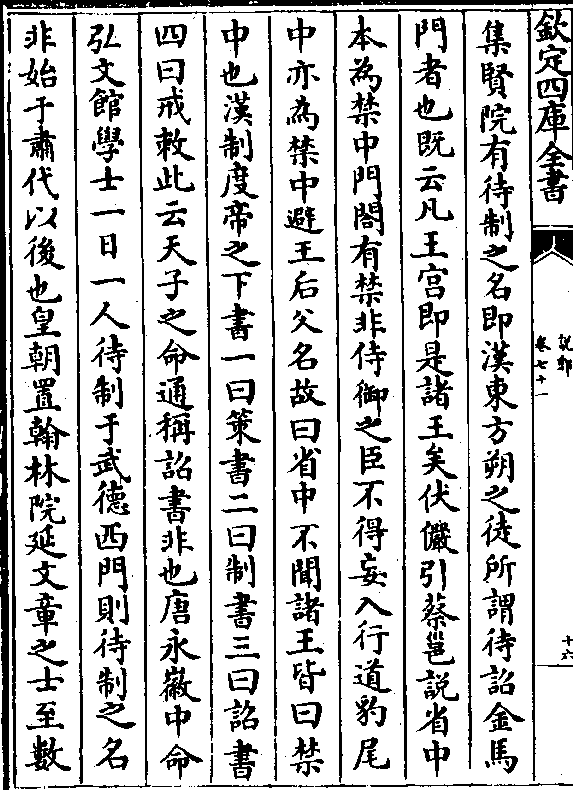 欽定四庫全書
說郛
卷七十一
十六
集賢院有待制之名即漢東方朔之徒所謂待詔金馬
門者也既云凡王宫即是諸王矣伏儼引蔡邕說省中
本為禁中門閤有禁非侍御之臣不得妄入行道豹尾
中亦為禁中避王后父名故曰省中不聞諸王皆曰禁
中也漢制度帝之下書一曰策書二曰制書三曰詔書
四曰戒敕此云天子之命通稱詔書非也唐永徽中命
弘文館學士一日一人待制于武德西門則待制之名
非始于肅代以後也皇朝置翰林院延文章之士至數